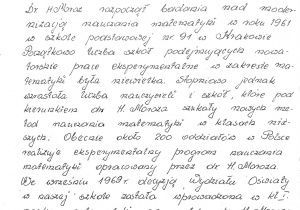 Dr. H. Moroz rozpoczął badania nad moder-
nizacją nauczania matematyki w roku 1961
w szkole podstawowej nr. 91 w Krakowie
Początkowo liczba szkół podejmujących nowa-
torskie prace eksperymentalne w zakresie ma-
tematyki była niewielka. Stopniowo jednak
wzrastała liczba nauczycieli i szkół, które pod
kierunkiem dr H. Moroza szkoły naszych me-
tod nauczania matematyki w klasach niż-
szych. Obecnie około 200 oddziałów w Polsce
realizuje eksperymentalny program nauczania
matematyki opracowany przez dr H. Moroza.
We wrześniu 1969 r. decyzją Wydziału Oświaty
w naszej szkole została wprowadzona w kl. I